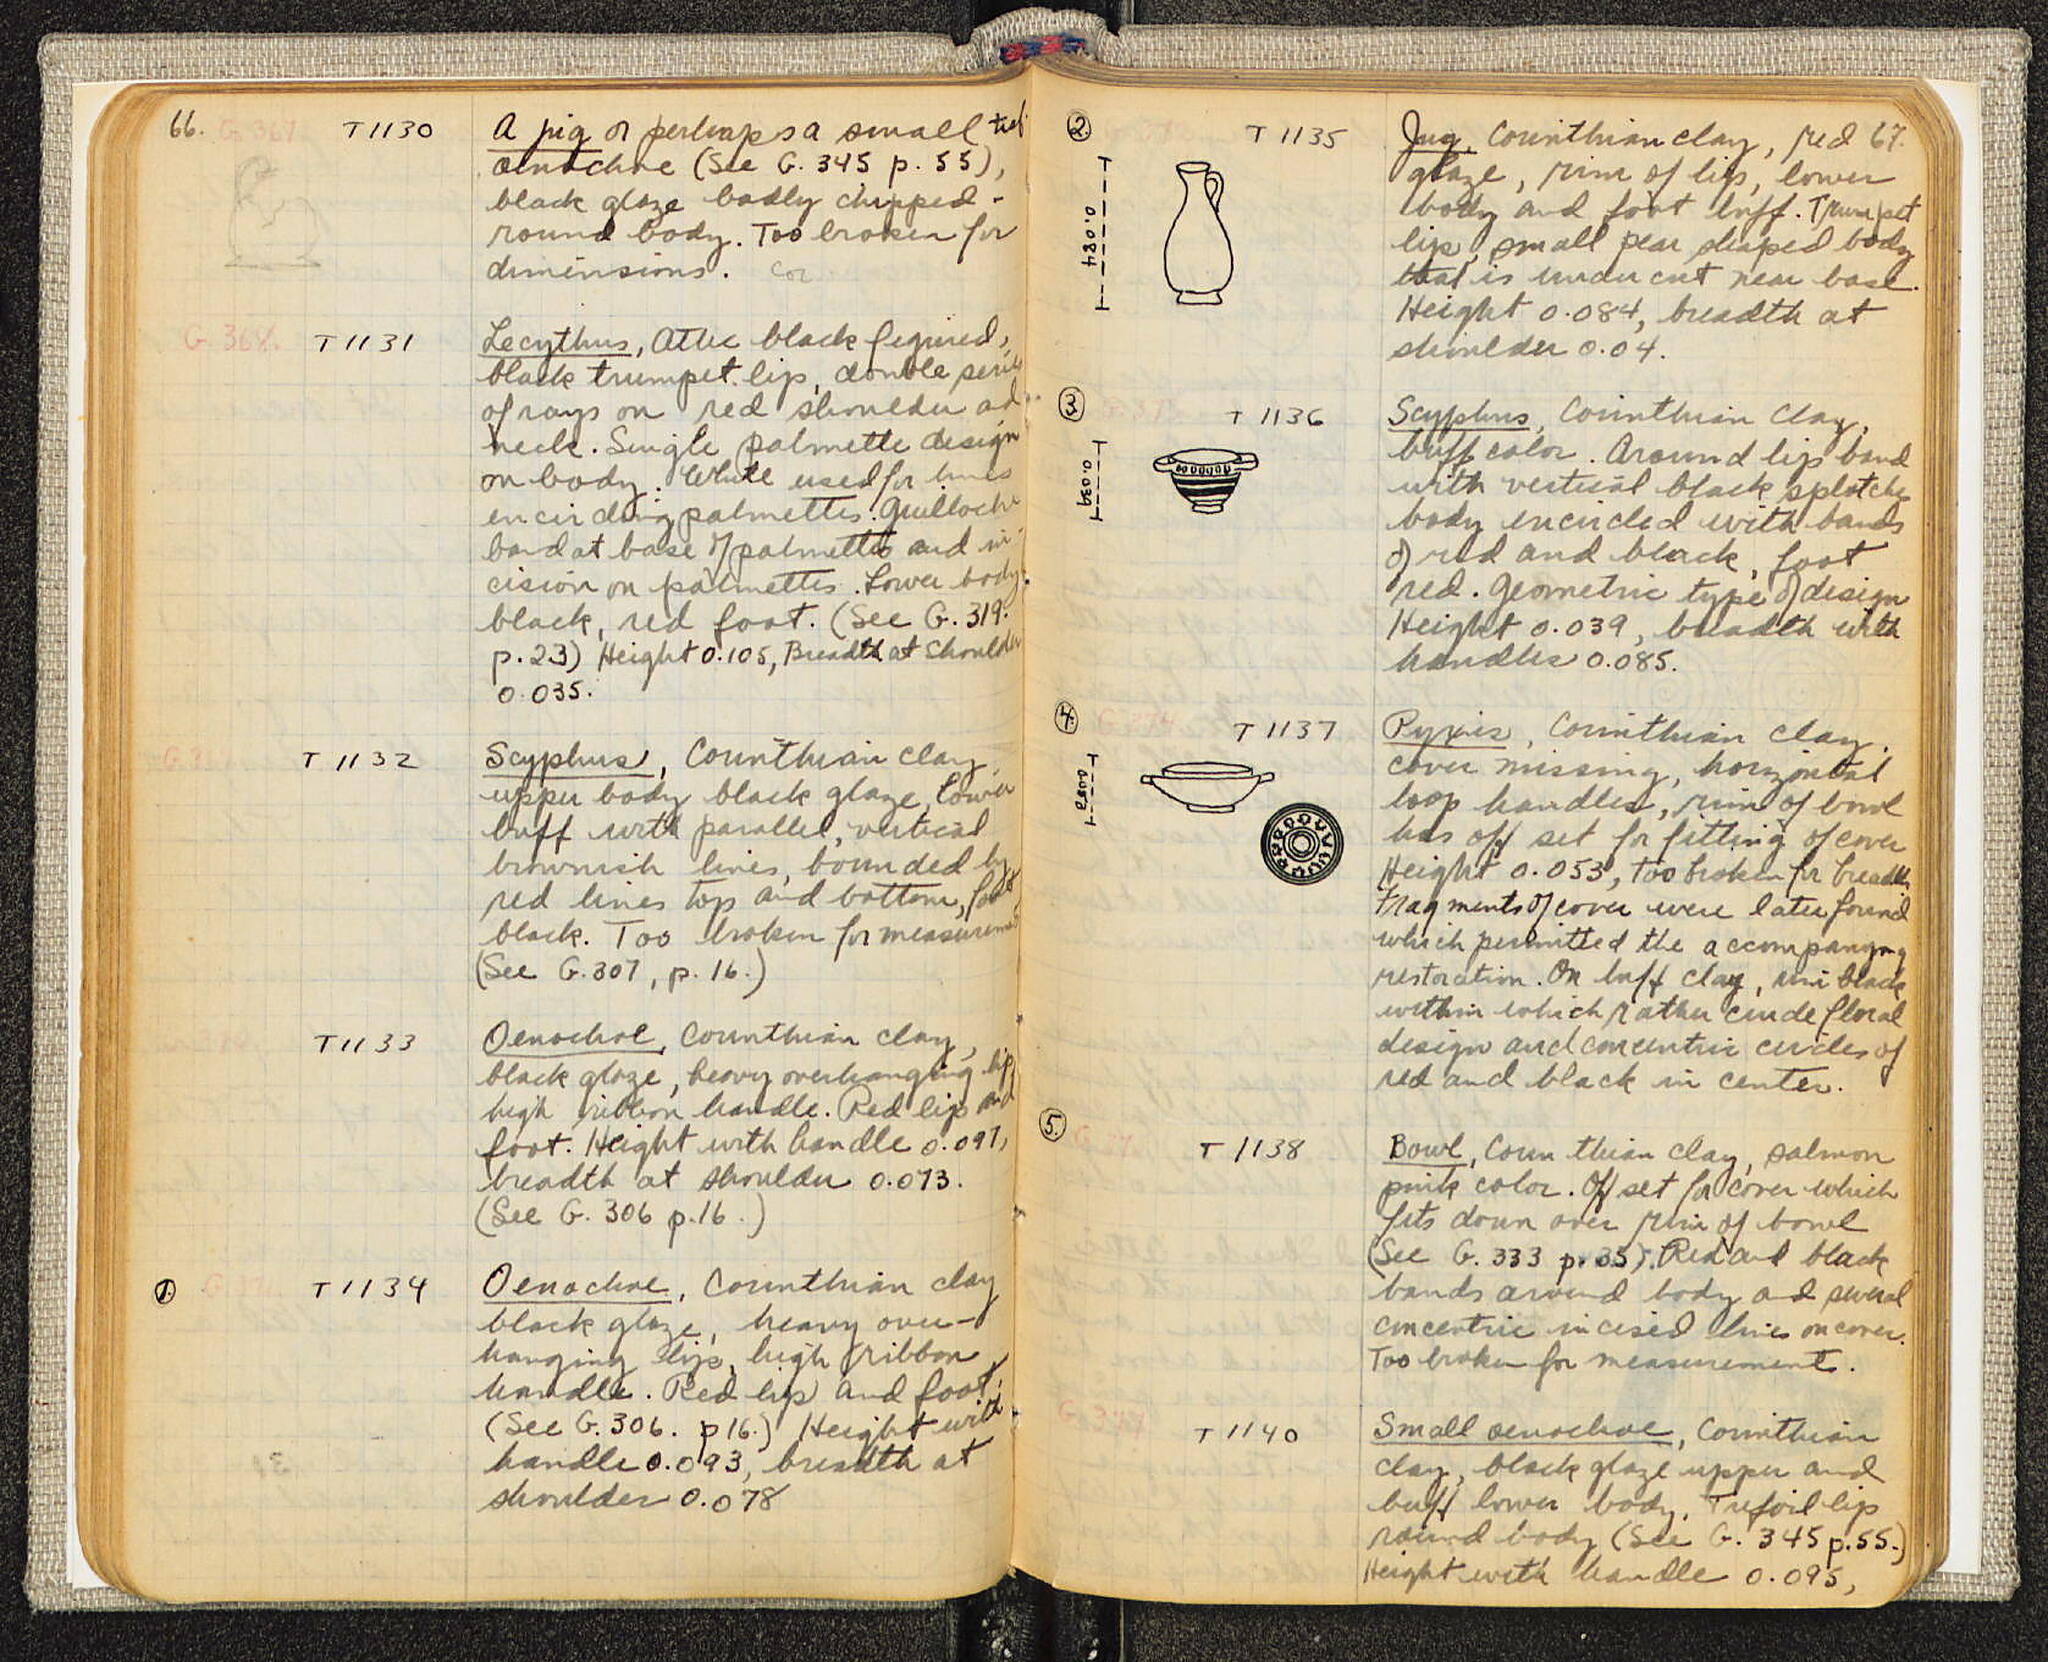 66. G. 367 T 1130 A jug or perhaps a small tref
oenochoe (See G. 345 p. 55),
black glaze badly chipped -
round body. Too broken for
dimensions. Cor
G. 368. T 1131 Lecythus, Attic black figured,
black trumpet lip, double series
of rays on red shoulder ad
neck. Single palmette design
on body. White used for lines
encircling palmettes. Guilloche
band at base of palmettes and in-
cision on palmettes. Lower body
black, red foot. (See G. 319.
p. 23) Height 0.105, Breadth at shoulder
0.035.
T 1132 Scyphus, Corinthian clay
upper body black glaze, lower
buff with parallel, vertical
brownish lines, bounded by
red lines top and bottom, foot
black. Too broken for measurement
(See G. 307, p. 16.)
T 1133 Oenochoe, Corinthian clay,
black glaze, heavy overhanging lip,
high ribbon handle. Red lip and
foot. Height with handle 0.097,
breadth at shoulder 0.073.
(See G. 306 p. 16.)
1. T 1134 Oenochoe, Corinthian clay
black glaze, heavy over-
hanging lip, high ribbon
handle. Red lip and foot.
(See G. 306. p 16.) Height with
handle 0.093, breadth at
shoulder 0.078
2. T 1135 Jug, Corinthian clay, red 67.
glaze, rim of lip, lower
body and foot buff. Trumpet
lip, small pear shaped body
that is under cut near base.
Height 0.084, breadth at
shoulder 0.04.
0.084
3. T 1136 Scyphus, Corinthian clay,
buff color. Around lip band
with vertical black splotches
body encircled with bands
of red and black, foot
red. Geometric type of design
Height 0.039, breadth with
handles 0.085.
0.039
4. G. 374 T 1137 Pyxis, Corinthian clay.
cover missing, horizontal
loop handles, rim of bowl
has off set for fitting of cover
Height 0.053, too broken for breadth
Fragments of cover were later found
which permitted the accompanying
restoration. On buff clay, rim black
within which rather crude floral
design and concentric circles of
red and black in center.
0.053
5. T 1138 Bowl, Corinthian clay, salmon
pink color. Off set for cover which
fits down over rim of bowl
(See G. 333 p. 35). Red and black
bands around body and several
concentric incised lines on cover.
Too broken for measurement.
G. 377 T 1140 Small oenochoe, Corinthian
clay, black glaze upper and
buff lower body. Trefoil lip
round body (See G. 345 p. 55.)
Height with handle 0.095,